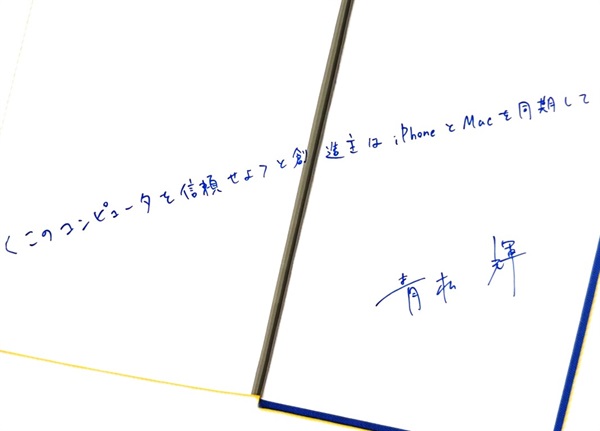 〈このコンピュータを信頼せよ〉と創造主はiPhoneとMacを同期して
青松 輝